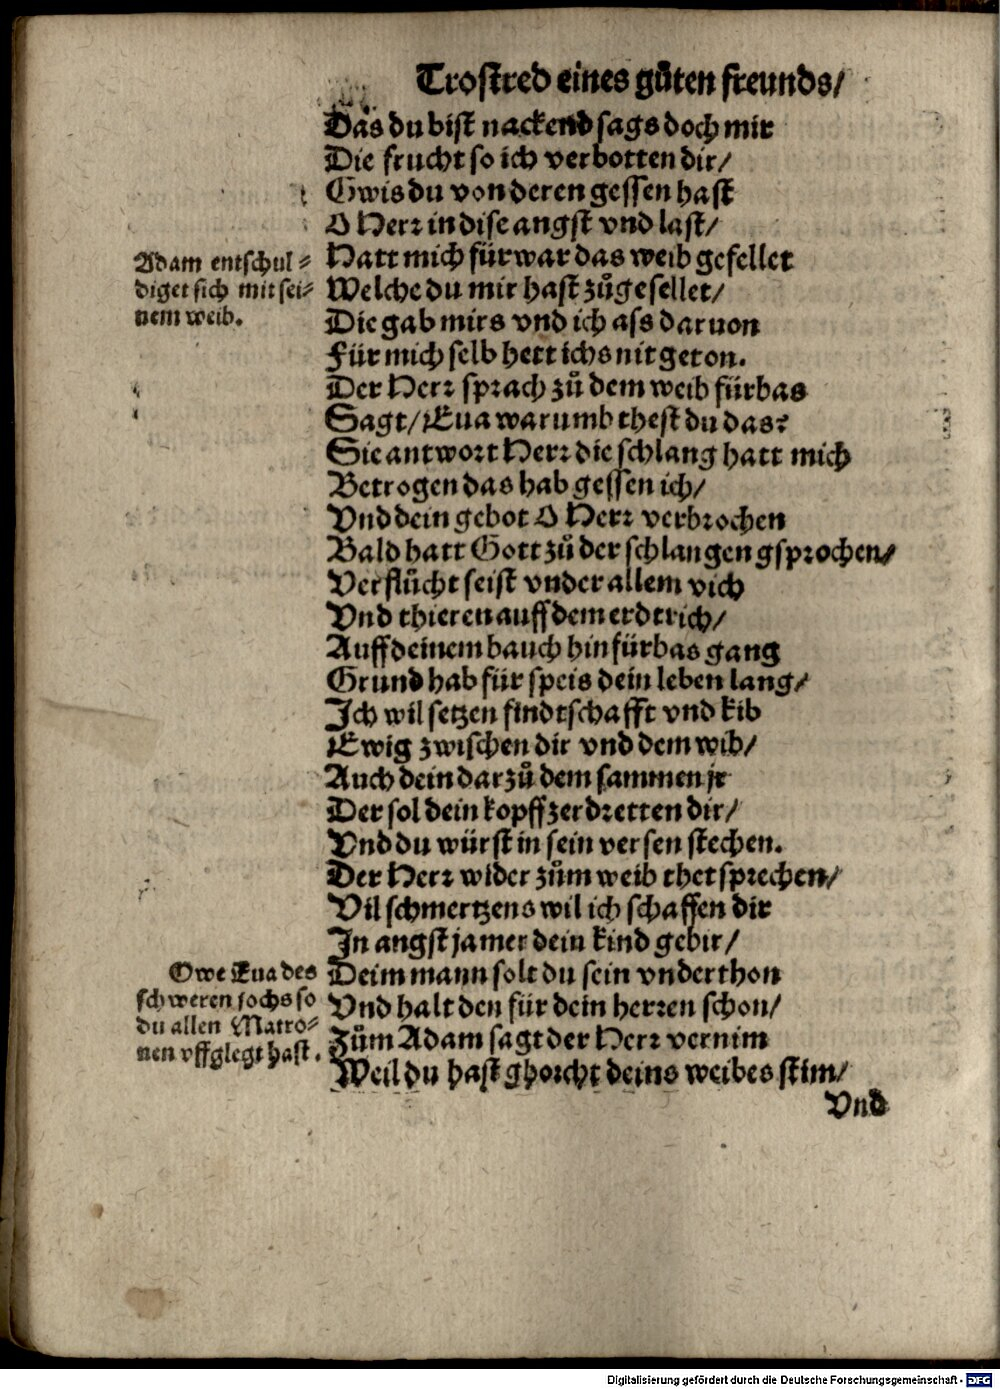 Trostred eines gůten freunds/
Das du bist nackend sags doch mir
Die frucht so ich verbotten dir/
Gwis du von deren gessen hast
O Herr in dise angst vnd last/
Hatt mich fürwar das weib gefellet
Welche du mir hast zůgesellet/
Die gab mirs vnd ich ass daruon
Für mich selb hett ichs nit geton.
Der Herr sprach zů dem weib fürbas
Sagt/ Eua warumb thest du das?
Sie antwort Herr die schlang hatt mich
Betrogen das hab gessen ich/
Vnd dein gebot O Herr verbrochen
Bald hatt Gott zů der schlangen gsprochen/
Verflůcht seist vnder allem vich
Vnd thieren auff dem erdtrich/
Auff deinem bauch hinfürbas gang
Grund hab für speis dein leben lang/
Ich wil setzen findtschafft vnd kib
Ewig zwischen dir vnd dem wib/
Auch dein darzů dem sammen jr
Der sol dein kopff zerdretten dir/
Vnd du würst in sein versen stechen.
Der Herr wider zům weib thet sprechen/
Vil schmertzens wil ich schaffen dir
In angst jamer dein kind gebir/
Deim mann solt du sein vnderthon
Vnd halt den für dein herren schon/
Zům Adam sagt der Herr vernim
Weil du hast ghorcht deins weibes stim/
Vnd
Adam entschul=
diget sich mit sei=
nem weib.
Owe Eua des
schweren jochs so
du allen Matro=
nen vffglegt hast.
Digitalisierung gefördert durch die Deutsche Forschungsgemeinschaft - DFG